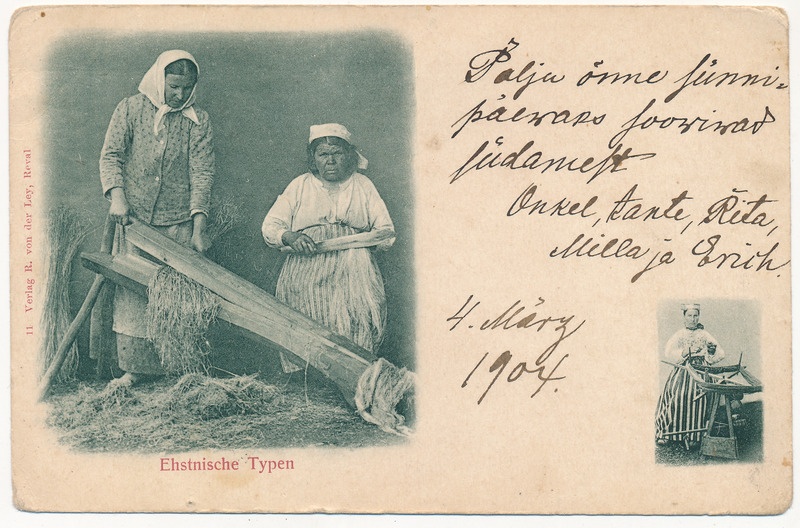 Palju õnne sünni-
päewaks soowiwad
südamest
Onkel, tante, Rita,
Milla ja Erich.
4. März
1904.
Ehstnische Typen
11 Verlag R. von der Ley, Reval